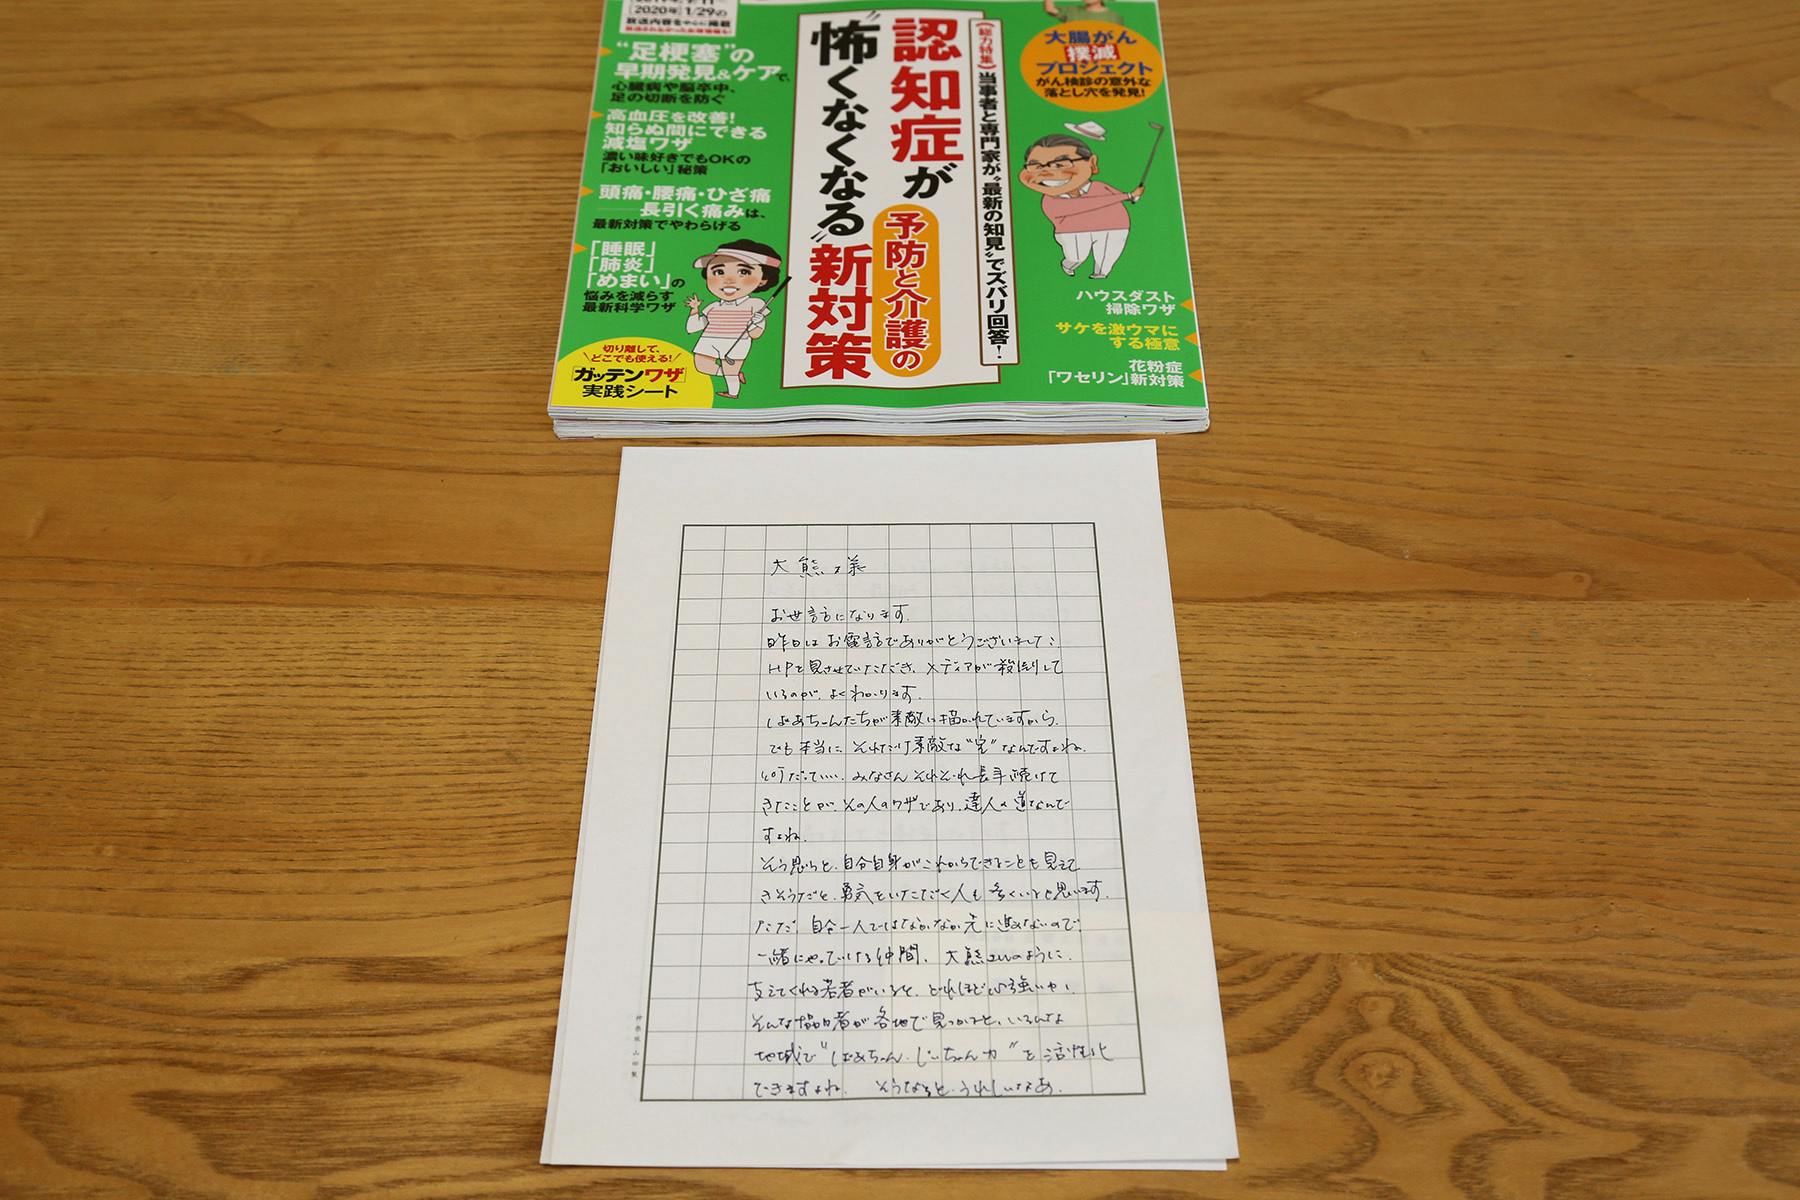 [2020年]1/29の
放送内容を中心に掲載
“足梗塞”の
早期発見&ケアで、
心臓病や脳卒中、
足の切断を防ぐ
高血圧を改善!
知らぬ間にできる
減塩ワザ
濃い味好きでもOKの
「おいしい」秘策
頭痛・腰痛・ひざ痛
長引く痛みは、
最新対策でやわらげる
「睡眠」
「肺炎」
「めまい」の
悩みを減らす
最新科学ワザ
切り離して、
どこでも使える!
「ガッテンワザ」
実践シート
《総力特集》当事者と専門家が“最新の知見”でズバリ回答!
認知症が
予防と介護の
“怖くなくなる”新対策
大腸がん
撲滅
プロジェクト
がん検診の意外な
落とし穴を発見!
ハウスダスト
掃除ワザ
サケを激ウマに
する極意
花粉症
「ワセリン」新対策
大熊様
お世話になります。
昨日はお電話でありがとうございました。
HPを見させていただき、メディアが殺到して
いるのが、よくわかります。
ばあちゃんたちが素敵に描かれていますから。
でも本当に、それだけ素敵な“宝”なんですよね。
何だっていい、みなさんそれぞれ長年続けて
きたことが、その人のワザであり、達人の道なんで
すよね。
そう思うと、自分自身がこれからできることも見えて
きそうだと、勇気をいただく人も多くいると思います。
ただ、自分一人ではなかなか先に進めないので、
一緒にやっていける仲間、大熊さんのように、
支えてくれる若者がいると、どれほど心強いか、
そんな協力者が各地で見つかると、いろんな
地域で“ばあちゃん、じいちゃん力”を活性化
できますよね。 そうなると、うれしいなあ。
神楽坂 山田製